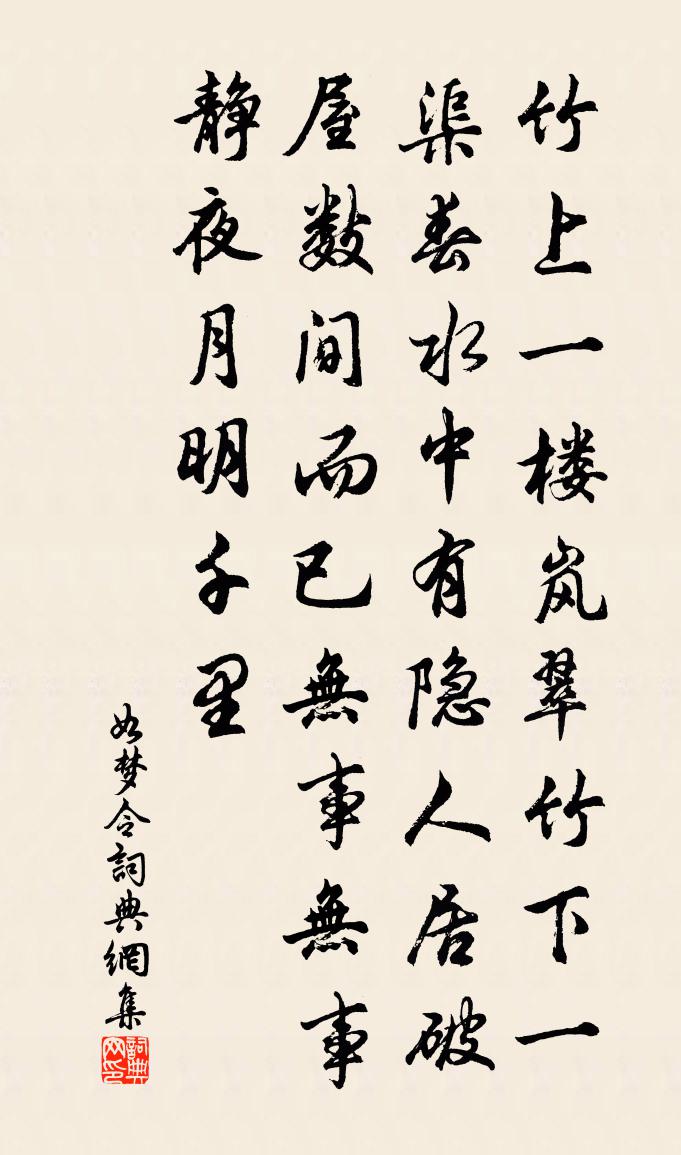 竹上一楼岚翠竹下一
渠春水中有隐人居破
屋数间而已無事無事
静夜月明千里
如梦令詞典網集
詞典
网印